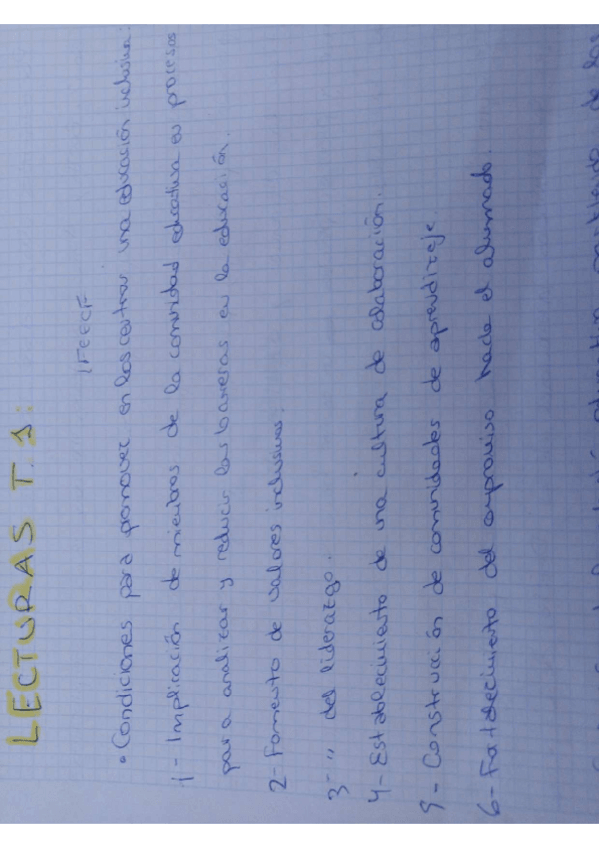 LECTURAS T.1:
IFEECF
• Condiciones para promover en los centros una educación inclusiva:
1- Implicación de miembros de la comunidad educativa en procesos
para analizar y reducir las barreras en la educación.
2- Fomento de valores inclusivos.
3- " del liderazgo.
4- Establecimiento de una cultura de colaboración.
5- Construcción de comunidades de aprendizaje.
6- Fortalecimiento del compromiso hacia el alumnado.